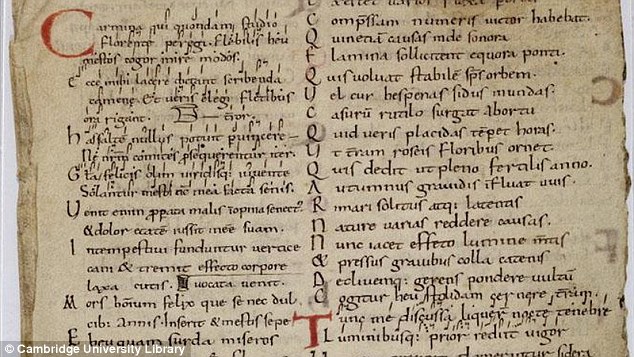 Carmina qui quondam studio
florente peregi. Flebilis heu
mestos cogor inire modos.
Ecce mihi lacere dictant scribenda
camene. Et ueris elegi fletibus
ora rigant. terror.
has saltē nullus potuit puincere
Ne nrm comites psequerentur iter.
Gła felicis olim uiridisq; iuuente
Solantur mesti nc mea fata senis.
Uenit enim ppata malis inopina senect'
& dolor etatē iussit inee suam.
Intempestiui funduntur uertice
cani & tremit effecto corpore
laxa cutis. uocata uenit.
Mors hominū felix que se nec dul
cib; annis. Inserit & mestis sepe
Eheu quam surda miseros
Compssam numeris uictor habebat.
Que uentia causas unde sonora
flamina sollicitent equora ponti.
Quis uoluat stabilē sps orbem.
Uel cur hesperias sidus in undas.
Casurū rutilo surgat ab ortu
Quid ueris placidas tēpet horas.
Ut trram roseis floribus ornet.
Quis dedit ut pleno fertilis anno.
Autumnus grauidis īfluat uuis.
Rimari solitus atq; latentis
Nature uarias reddere causas.
Nunc iacet effeto lumine mtis
& pressus grauibus colla catenis
Decliuemq; gerens pondere uultū
Cogitur heu stolidam cernere trram.
Tunc me discussa liquer nocte tenebre
Luminibusq; prior rediit uigor
© Cambridge University Library